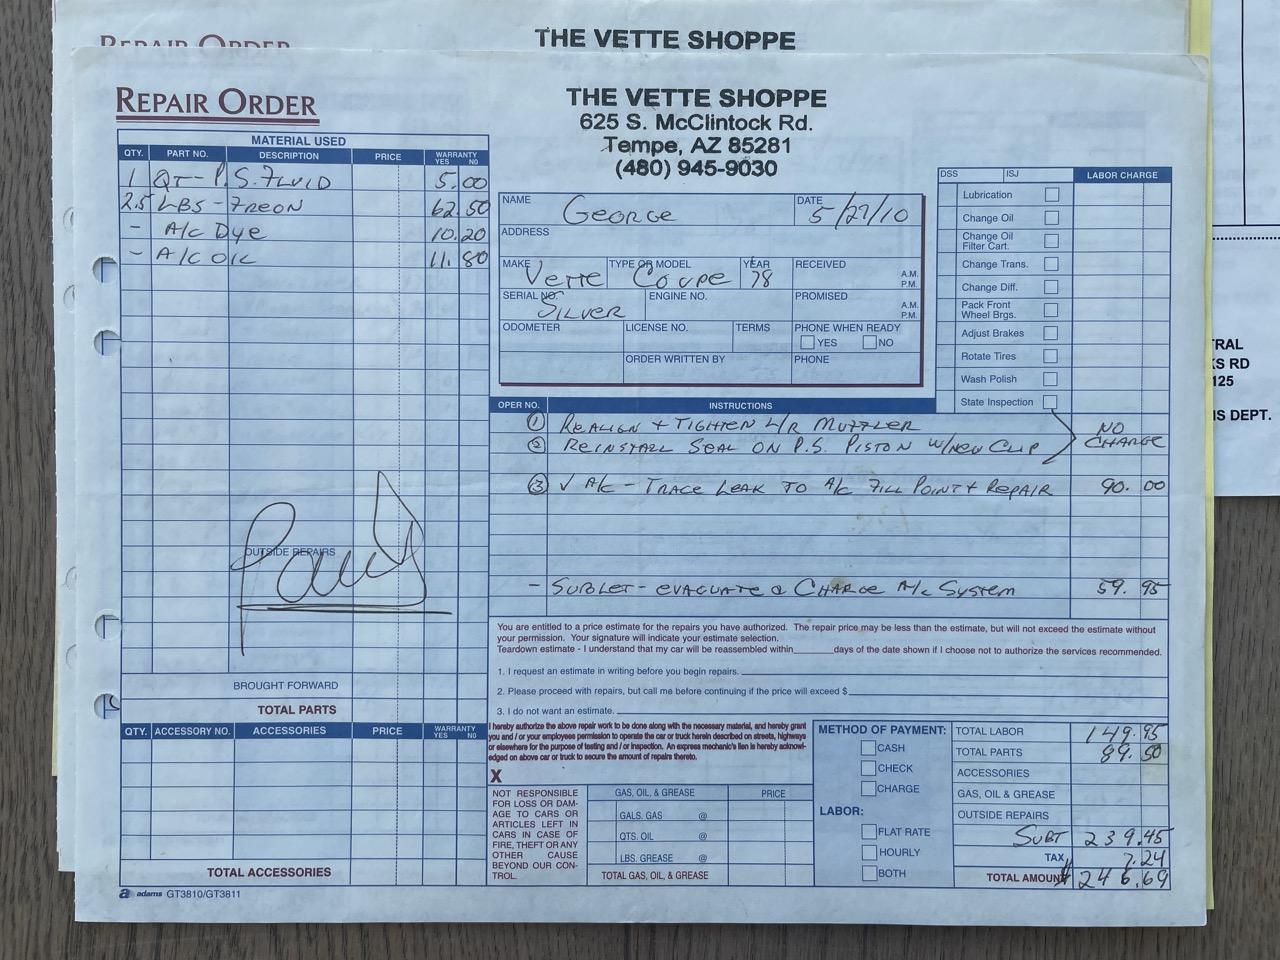 REPAIR ORDER
THE VETTE SHOPPE
REPAIR ORDER
THE VETTE SHOPPE
625 S. McClintock Rd.
Tempe, AZ 85281
(480) 945-9030
MATERIAL USED
QTY. PART NO. DESCRIPTION PRICE WARRANTY YES NO
1 QT - P.S. FLUID 5.00
2.5 LBS - FREON 62.50
- A/C Dye 10.20
- A/C OIL 11.80
OUTSIDE REPAIRS
Paid
BROUGHT FORWARD
TOTAL PARTS
NAME George DATE 5/27/10
ADDRESS
MAKE Vette TYPE OR MODEL Coupe YEAR 78 RECEIVED A.M. P.M.
SERIAL NO. SILVER ENGINE NO. PROMISED A.M. P.M.
ODOMETER LICENSE NO. TERMS PHONE WHEN READY
YES NO
ORDER WRITTEN BY PHONE
DSS ISJ LABOR CHARGE
Lubrication
Change Oil
Change Oil Filter Cart.
Change Trans.
Change Diff.
Pack Front Wheel Brgs.
Adjust Brakes
Rotate Tires
Wash Polish
State Inspection
OPER NO. INSTRUCTIONS
1 REALIGN + TIGHTEN L/R MUFFLER NO
2 REINSTALL SEAL ON P.S. PISTON W/NEW CLIP CHARGE
3 ✓ A/C - TRACE LEAK TO A/C FILL POINT + REPAIR 90.00
- SUBLET - EVACUATE & CHARGE A/C SYSTEM 59.95
You are entitled to a price estimate for the repairs you have authorized. The repair price may be less than the estimate, but will not exceed the estimate without
your permission. Your signature will indicate your estimate selection.
Teardown estimate - I understand that my car will be reassembled within______days of the date shown if I choose not to authorize the services recommended.
1. I request an estimate in writing before you begin repairs.
2. Please proceed with repairs, but call me before continuing if the price will exceed $
3. I do not want an estimate.
QTY. ACCESSORY NO. ACCESSORIES PRICE WARRANTY YES NO
TOTAL ACCESSORIES
I hereby authorize the above repair work to be done along with the necessary material, and hereby grant
you and / or your employees permission to operate the car or truck herein described on streets, highways
or elsewhere for the purpose of testing and / or inspection. An express mechanic's lien is hereby acknowl-
edged on above car or truck to secure the amount of repairs thereto.
X
NOT RESPONSIBLE
FOR LOSS OR DAM-
AGE TO CARS OR
ARTICLES LEFT IN
CARS IN CASE OF
FIRE, THEFT OR ANY
OTHER CAUSE
BEYOND OUR CON-
TROL.
GAS, OIL, & GREASE PRICE
GALS. GAS @
QTS. OIL @
LBS. GREASE @
TOTAL GAS, OIL, & GREASE
METHOD OF PAYMENT:
CASH
CHECK
CHARGE
LABOR:
FLAT RATE
HOURLY
BOTH
TOTAL LABOR 149.95
TOTAL PARTS 89.50
ACCESSORIES
GAS, OIL & GREASE
OUTSIDE REPAIRS
SUBT 239.45
TAX 7.24
TOTAL AMOUNT $ 246.69
a adams GT3810/GT3811
TRAL
KS RD
125
IS DEPT.